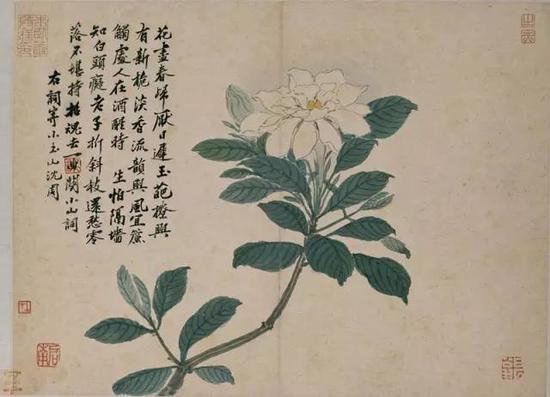 花盡春歸厭日遲玉葩撩興
有新梔淡香流韻與風宜簾
觸處人在酒醒時 生怕隔墻
知白頭癡老子折斜枝還愁零
落不堪持招魂去一闋小山詞
右詞寄小重山沈周